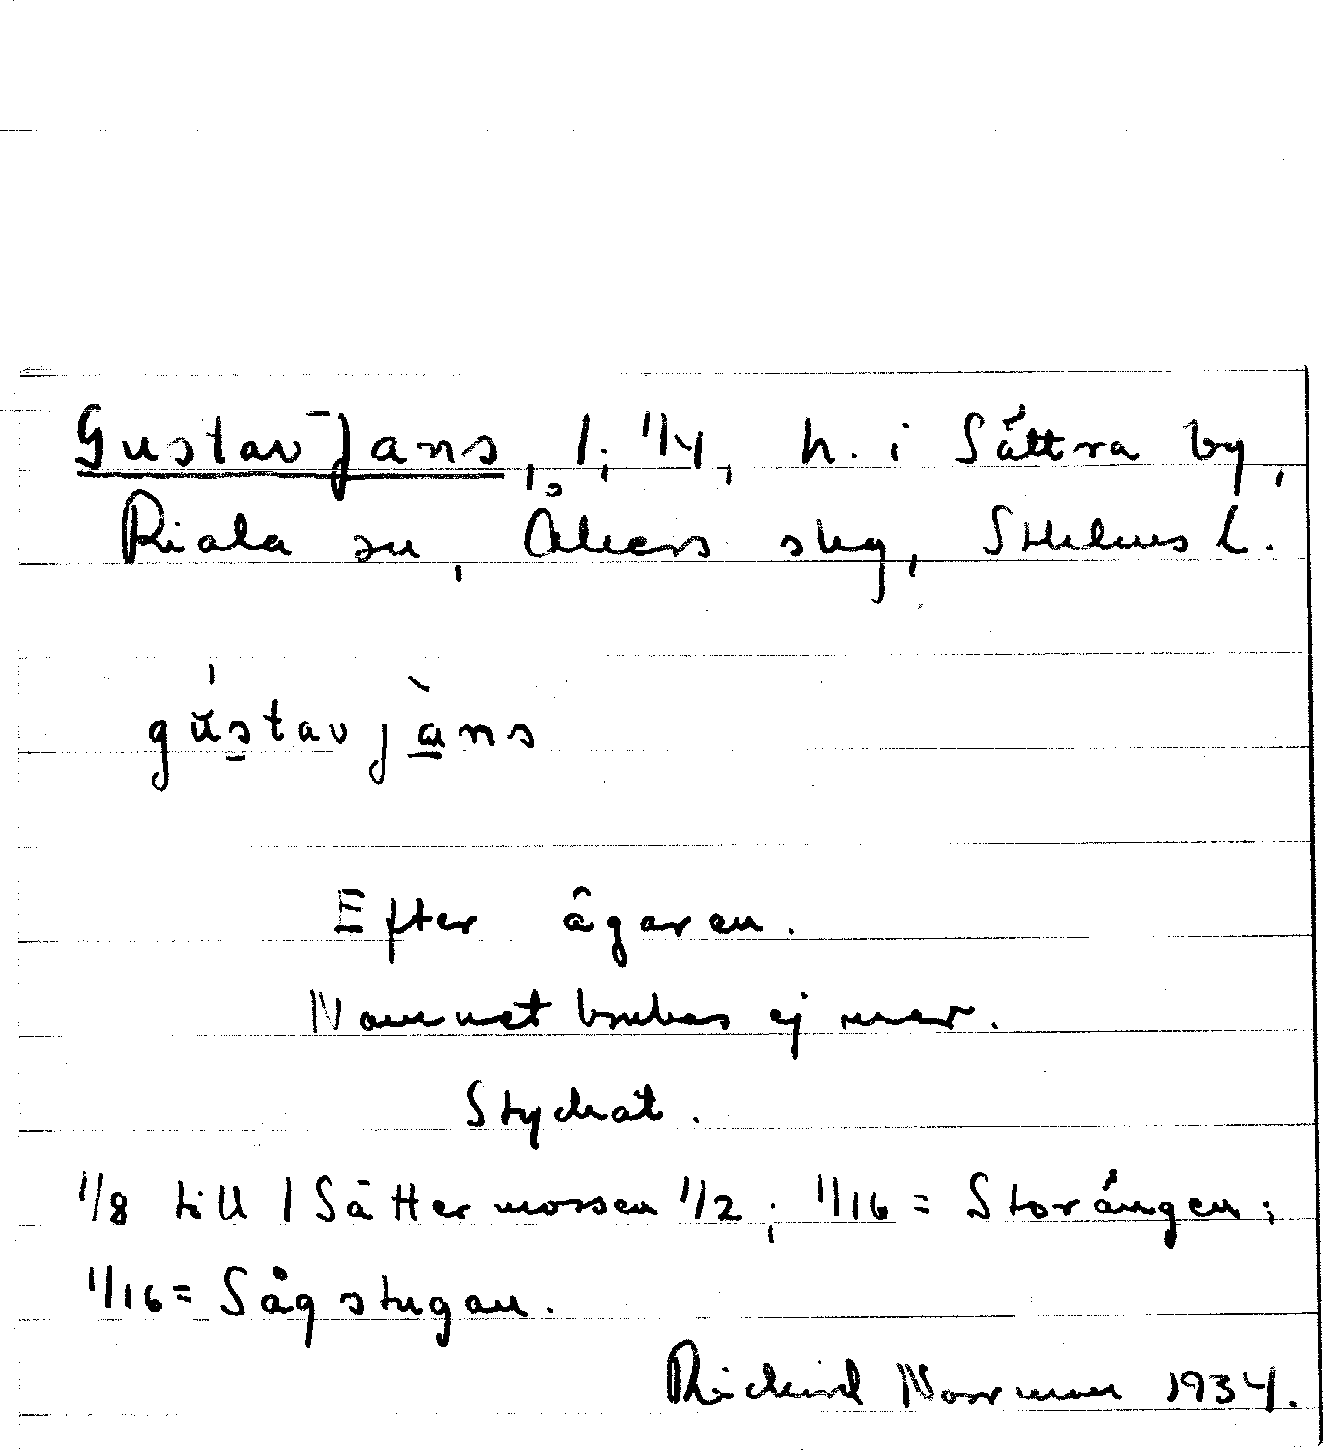 Gustav Jans, 1; 1/4, h. i Sättra by,
Riala sn, Åkers skg, Sthlms l.
gústavjàns
Efter ägaren.
Namnet brukas ej mer.
Styckat.
1/8 till 1 Sättermossen 1/2; 1/16 = Storängen;
1/16 = Sågstugan.
Rickard Norrman 1934.